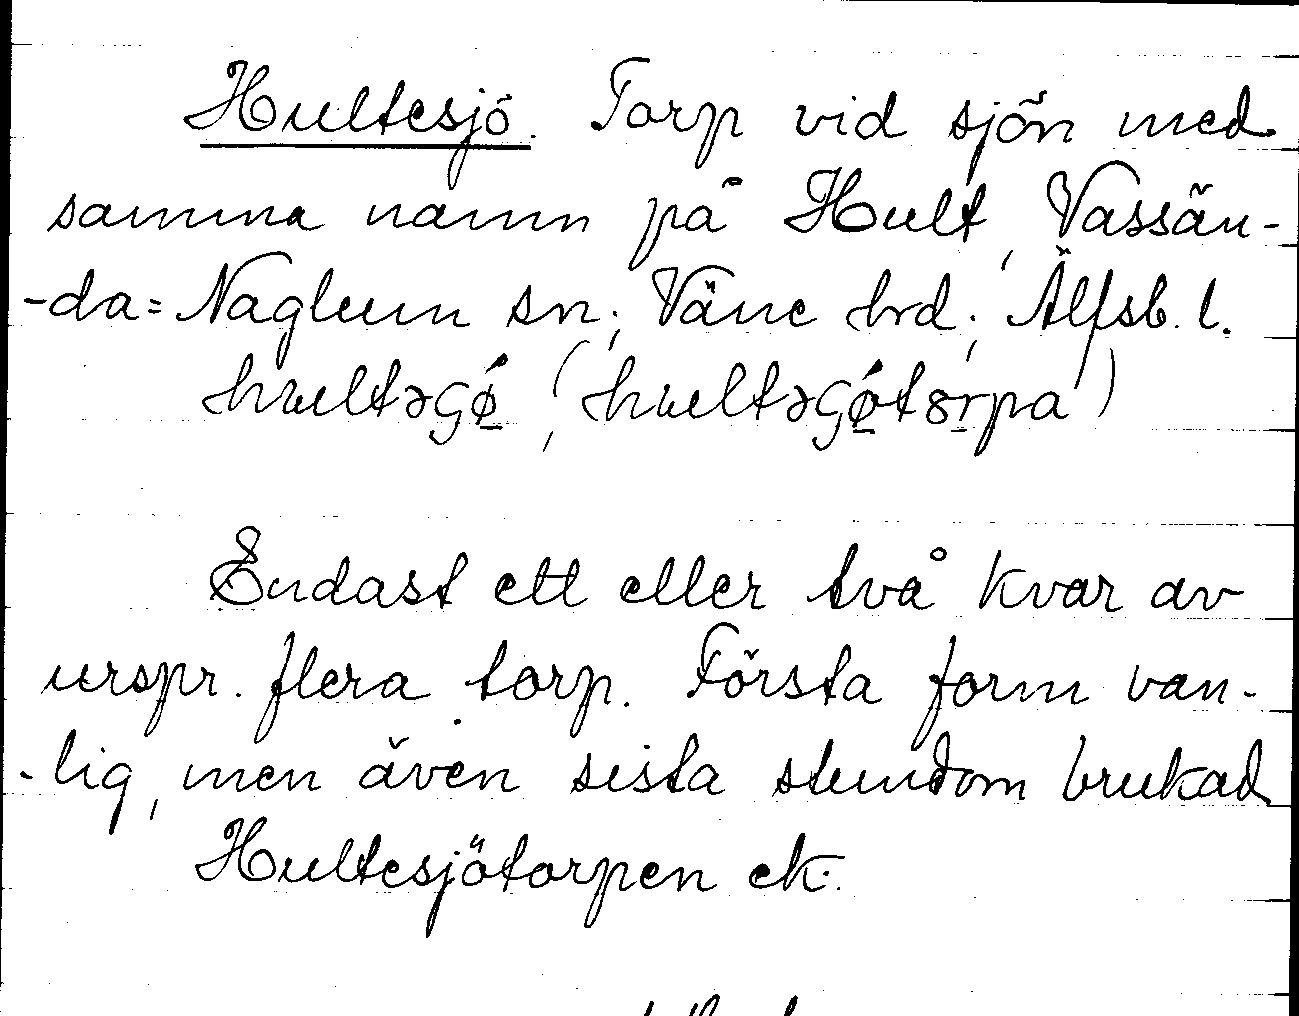 Hultesjö. Torp vid sjön med
samma namn på Hult, Vassän-
-da=Naglum sn; Väne hrd; Älfsb. l.
hultəGǿ̱, (hultəGǿ̱tȣr̲pa)
Endast ett eller två kvar av
urspr. flera torp. Första form van-
-lig, men även sista stundom brukad
Hultesjötorpen ek.